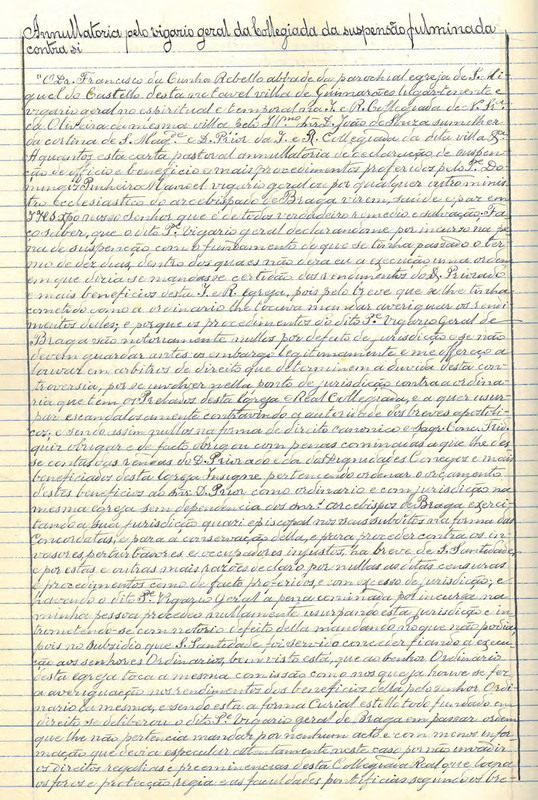 Annullatoria pelo vigario geral da Collegiada da suspensão fulminada
contra si
"O Dr. Francisco da Cunha Rebello abbade da parochial egreja de S. Mi-
guel do Castello desta notavel villa de Guimarães logartenente e
vigario geral no espiritual e temporal na I. e R. Collegiada de N. Sr.ª
da Oliveira da mesma villa pelo Ill.mo Snr. D. João de Sousa sumilher
da cortina de S. Mag.de e D. Prior da I. e R. Collegiada da dita villa
A quantos esta carta pastoral annullatoria de declaração de suspen-
ção de officio e beneficio e mais procedimentos proferidos pelo Do-
mingos Pinheiro Manoel vigario geral ou por qualquer outro minis-
tro ecclesiastico do arcebispado de Braga virem, saude e paz em
nosso senhor que é de todos verdadeiro remedio e salvação. Fa-
ço saber, que o dito P.e Vigario geral declarandome por incurso na pe-
na de suspenção com o fundamento de que se tinha passado o ter-
mo de dez dias, dentro dos quaes não dera eu a execução uma ordem
em que dizia se mandasse certidão dos rendimentos do D. Priorado
e mais beneficios desta I. e R. Egreja, pois pelo breve que se lhe tinha
comettido como a ordinario lhe tocava mandar averiguar os rendi-
mentos delles; e porque os procedimentos do dito P.e Vigario Geral de
Braga são notoriamente nullos por defeito de jurisdição e se não
devem guardar antes os embargo legitimamente e me offereço a
louvar em arbitros de direito que determinem a duvida desta con-
troversia, por se involver nella ponto de jurisdição contra a ordina-
ria que tem os Prelados desta Igreja e Real Collegiada, e a quer usur-
par escandalosamente contravindo a auteridade dos breves apostoli-
cos, e sendo assim nullos na forma de direito canonico e Sagr. Conc. Trid.
quiz obrigar e de facto obrigou com penas cominadas a que lhe des-
se contas das rendas do D. Priorado e da dos Dignidades Conegos e mais
beneficiados desta Igreja Insigne, pertencendo ordenar o orçamento
destes beneficios ao Snr. D. Prior como ordinario e com jurisdição na
mesma egreja sem dependencia dos snr.es arcebispos de Braga exerci-
tando a sua jurisdição quasi episcopal nos seus subditos na forma das
Concordatas, e para a conservação della, e para proceder contra os in-
vasores, perturbadores e occupadores injustos, ha breve de S. Santidade,
e por estas e outras mais razões declaro por nullas as ditas censuras
e procedimentos como de facto proferidos, e com excesso de jurisdição; e
havendo o dito P.e Vigario Geral a pena cominada por incursa na
minha pessoa procedeo nullamente usurpando esta jurisdição e in-
trometendo-se com notorio defeito della mandando no que não podia,
pois no Subsidio que S. Santidade foi servido conceder, fiando a execu-
ção aos senhores Ordinarios, bem visto está, que ao Senhor Ordinario
desta egreja toca a mesma comissão como nos que ja houve se fez
a averiguação nos rendimentos dos beneficios della pelo senhor Ordi-
nario da mesma, e sendo esta a forma Curial e estillo todo fundado em
direito se deliberou o dito P.e Vigario geral de Braga em passar ordem
que lhe não pertencia mandar por nenhum acto e com menos infor-
mação que devia especular attentamente neste caso por não invadir
os direitos regalias e preeminencias desta Collegiada Real que logra
os foros e protecção regia e as faculdades pontificias segundo os bre-